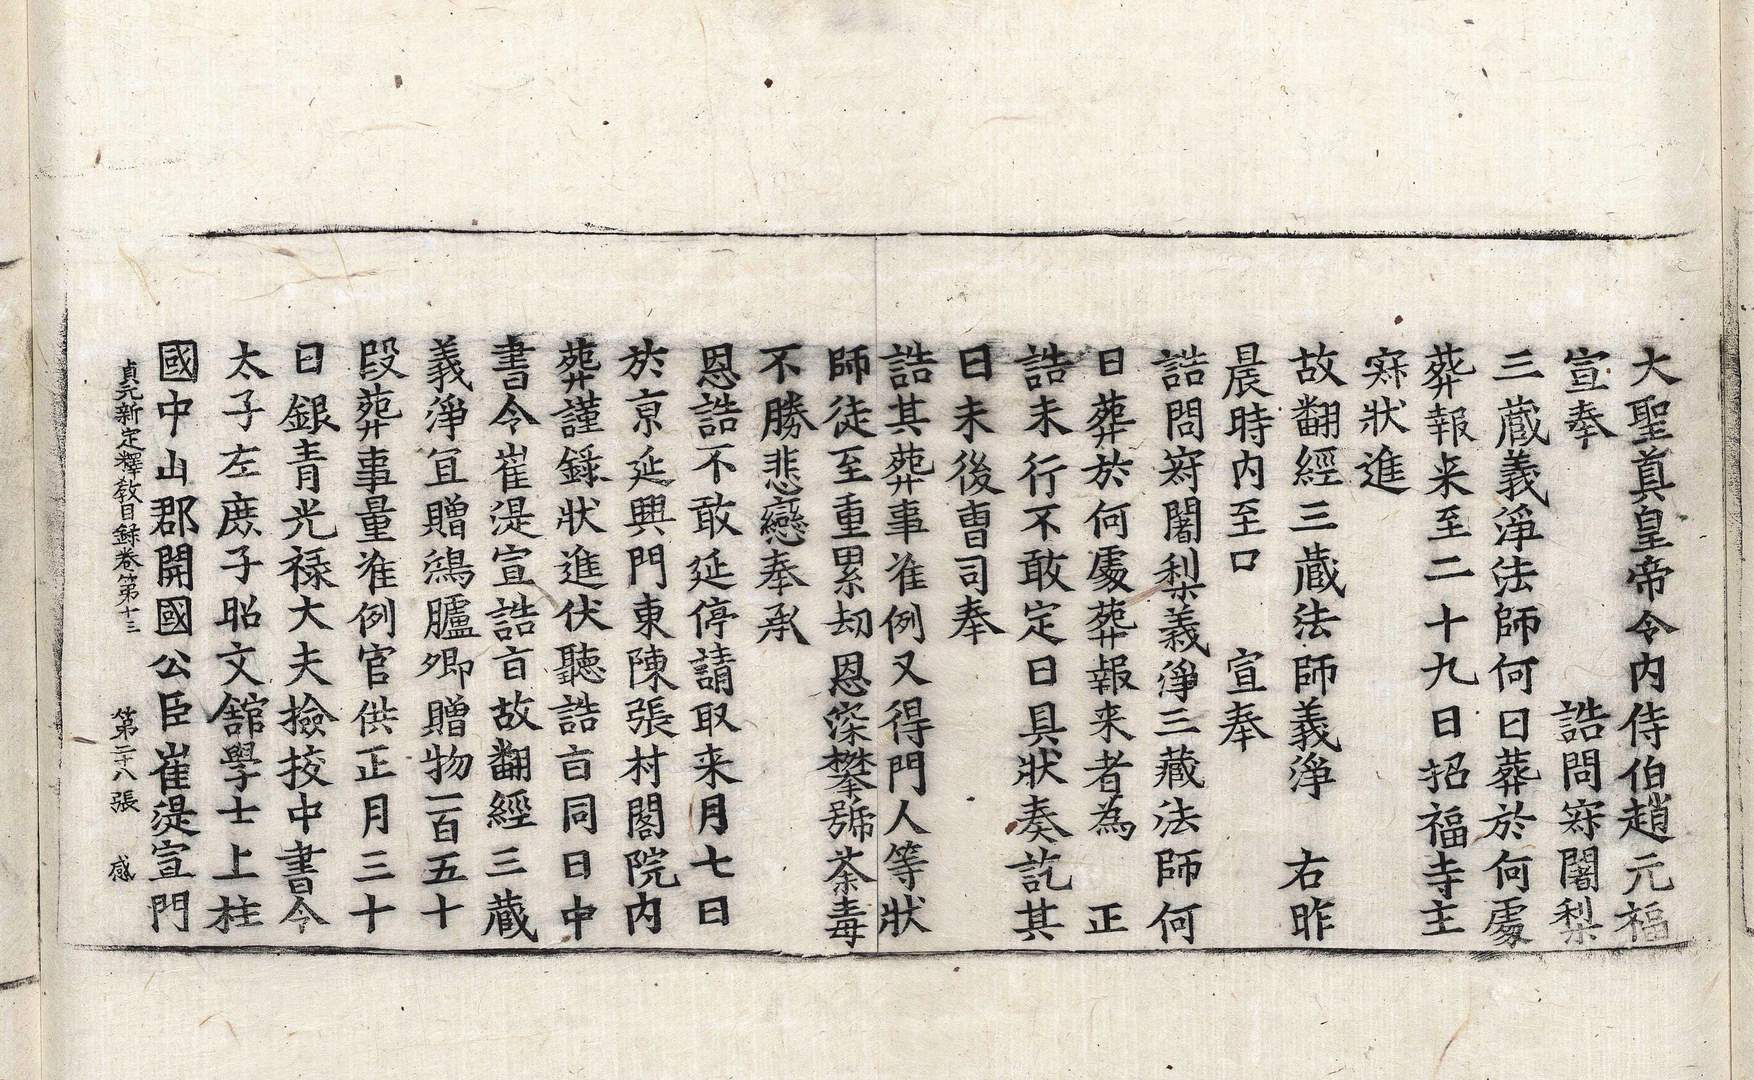 大聖真皇帝令内侍伯趙元福
宣奉　　　　　誥問㝛闍梨
三蔵義淨法師何日葬於何處
葬報来至二十九日招福寺主
㝛狀進
故翻經三蔵法師義淨　右昨
晨時内至口　宣奉
誥問㝛闍梨義淨三藏法師何
日葬於何處葬報来者為　正
誥未行不敢定日具狀奏訖其
日未後曺司奉
誥其葬事准例又得門人等狀
師徒至重累劫恩深攀號荼毒
不勝悲戀奉承
恩誥不敢延停請取来月七日
於京延興門東陳張村閣院内
葬謹録狀進伏聽誥旨同日中
書令崔湜宣誥旨故翻經三蔵
義淨冝贈鴻臚卿贈物一百五十
段葬事量准例官供正月三十
日銀青光禄大夫撿挍中書令
太子左庶子昭文舘學士上柱
國中山郡開國公臣崔湜宣門
貞元新定釋教目録卷第十三　第二十八張　感